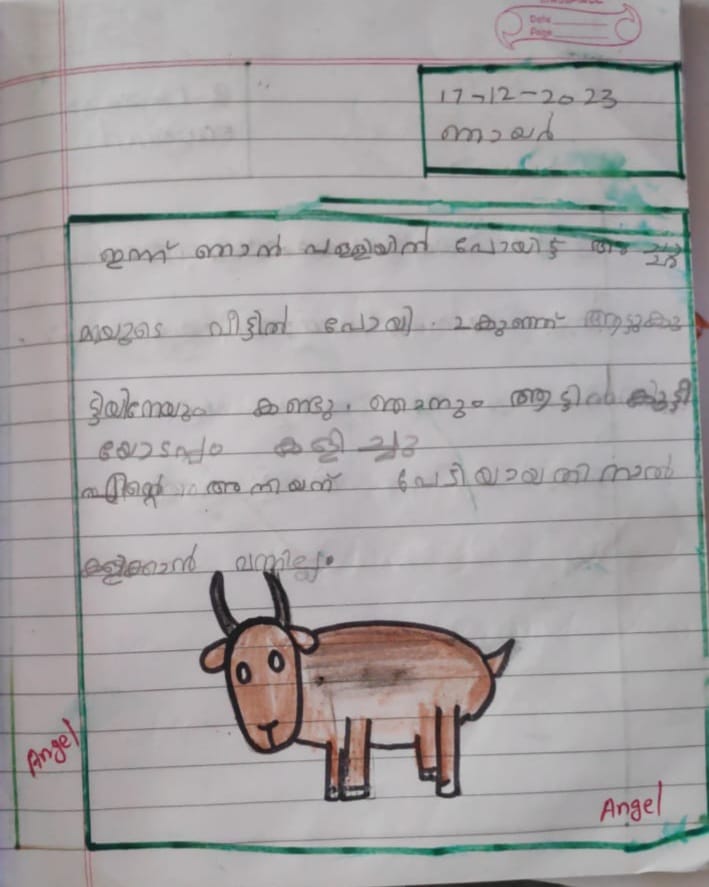 Date
Page
17-12-2023
ഞായർ
ഇന്ന് ഞാൻ പള്ളിയിൽ പോയിട്ട് അ
മയുടെ വീട്ടിൽ പോയി. 2 കുഞ്ഞ് ആട്ടുകു
ട്ടിയിനേയും കണ്ടു. ഞാനും ആട്ടിൻ കുട്ടി
യോടപ്പം കളിച്ചു
അനിയന് പേടിയായതിനാൽ
കളിക്കാൻ വന്നില്ല.
Angel
Angel